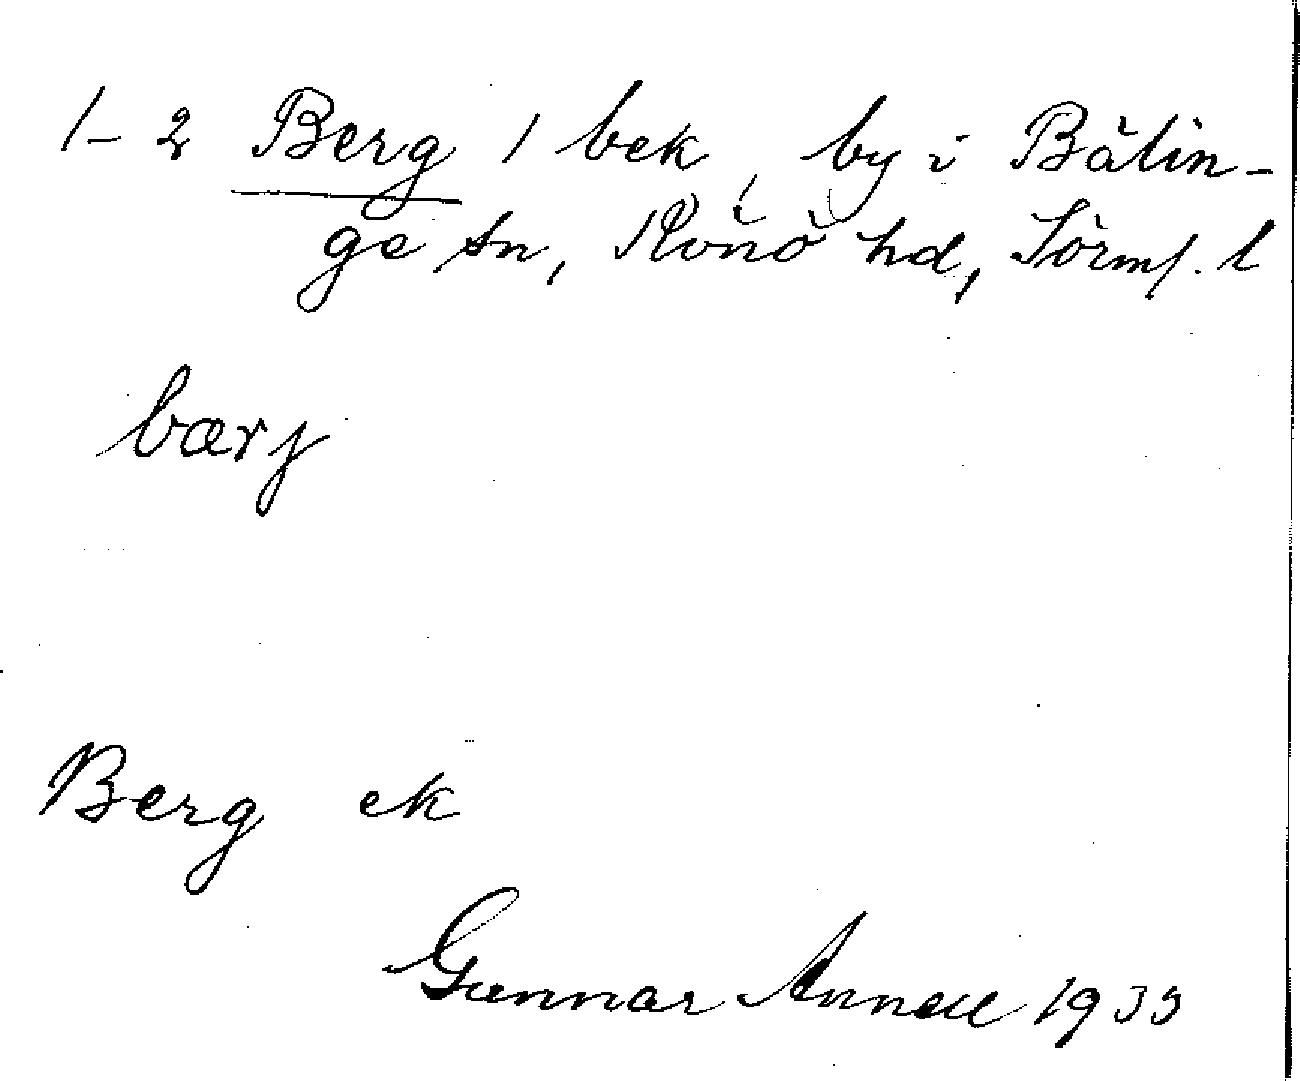 1-2 Berg / bek, by i Bälin-
ge sn, Rönö hd, Sörml. l
bærj
Berg ek
Gunnar Annell 1933